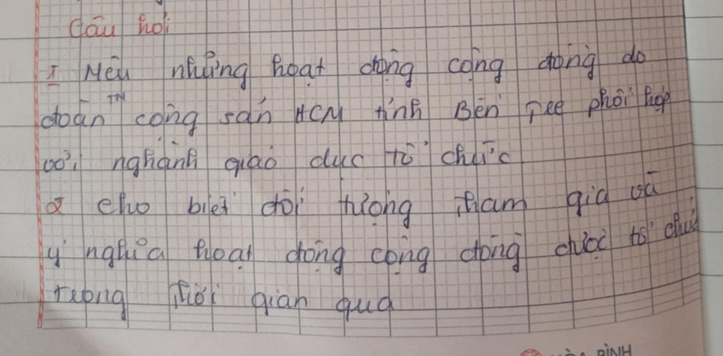 Câu hỏi
1 Nêu những hoạt động cộng đồng do
đoàn TN cộng sản HCM tỉnh Bến Tre phối hợp
với nghành giáo dục tổ chức
2 cho biết đối tượng tham gia và
ý nghĩa hoạt động cộng đồng được tổ chức
trong thời gian qua
BÌNH